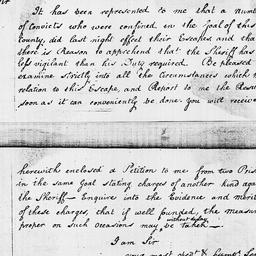 Sir
It has been represented to me that a Numb
of Convicts who were confined in the Goal of this
County, did last night effect their Escapes and tha
there is Reason to apprehend that the Sheriff has
less vigilant than his Duty required. Be pleased
examine strictly into all the Circumstances which
relation to this Escape, and Report to me the Resu
soon as it can conveniently be done. You will receive
herewith enclosed a Petition to me from two Pris
in the same Goal stating charges of another kind aga
the Sheriff — Enquire into the Evidence and merit
of these charges, that if well founded, the measur
proper on such Occasions may without delay be Taken —
I am Sir
your most obedt & humb. Se